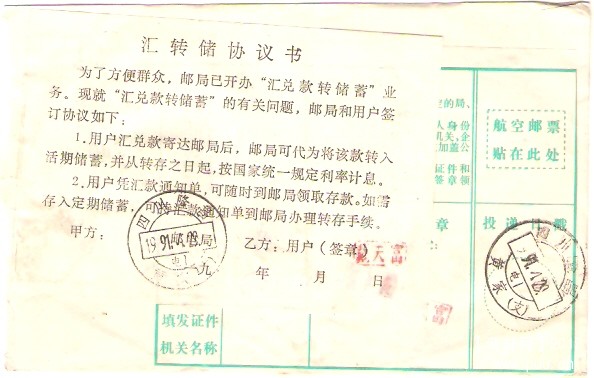 汇转储协议书
为了方便群众，邮局已开办“汇兑款转储蓄”业
务。现就“汇兑款转储蓄”的有关问题，邮局和用户签
订协议如下：
1.用户汇兑款寄达邮局后，邮局可代为将该款转入
活期储蓄，并从转存之日起，按国家统一规定利率计息。
2.用户凭汇款通知单，可随时到邮局领取存款。如需
存入定期储蓄，可持汇款通知单到邮局办理转存手续。
甲方： 局 乙方：用户（签章）
九 年 月 日
填发证件
机关名称
的局、
人身份
机关、企
加盖公
证件和
签章 领
章
航空邮票
贴在此处
投递日戳
四川隆昌
四川
黄家(支)